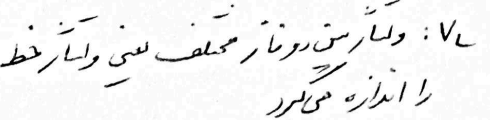 VL: ولتاژ بین دو فاز مختلف یعنی ولتاژ خط
را اندازه می‌گیرد